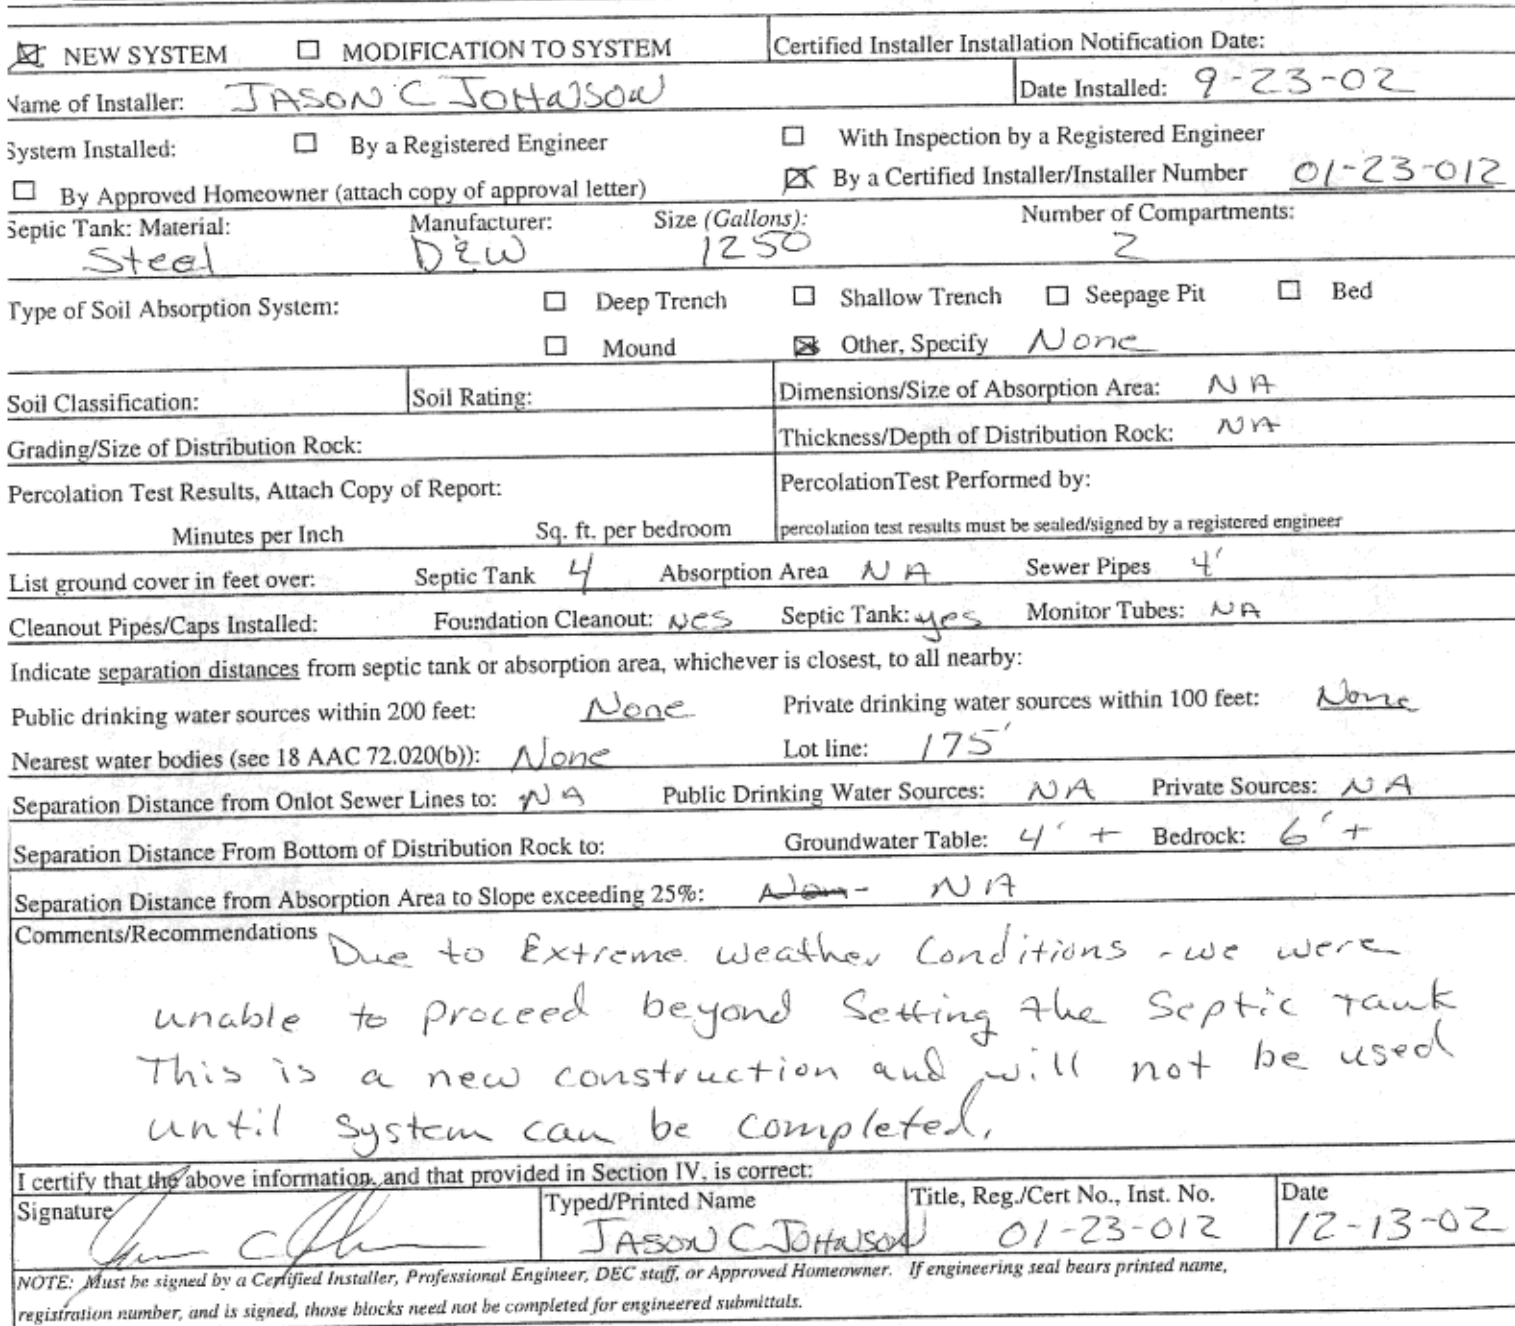 ☒ NEW SYSTEM ☐ MODIFICATION TO SYSTEM Certified Installer Installation Notification Date:
Name of Installer: JASON C JOHNSON Date Installed: 9-23-02
System Installed: ☐ By a Registered Engineer ☐ With Inspection by a Registered Engineer
☐ By Approved Homeowner (attach copy of approval letter) ☒ By a Certified Installer/Installer Number 01-23-012
Septic Tank: Material: Manufacturer: Size (Gallons): Number of Compartments:
Steel D&W 1250 2
Type of Soil Absorption System: ☐ Deep Trench ☐ Shallow Trench ☐ Seepage Pit ☐ Bed
☐ Mound ☒ Other, Specify None
Soil Classification: Soil Rating: Dimensions/Size of Absorption Area: NA
Grading/Size of Distribution Rock: Thickness/Depth of Distribution Rock: NA
Percolation Test Results, Attach Copy of Report: PercolationTest Performed by:
Minutes per Inch Sq. ft. per bedroom percolation test results must be sealed/signed by a registered engineer
List ground cover in feet over: Septic Tank 4 Absorption Area NA Sewer Pipes 4'
Cleanout Pipes/Caps Installed: Foundation Cleanout: yes Septic Tank: yes Monitor Tubes: NA
Indicate separation distances from septic tank or absorption area, whichever is closest, to all nearby:
Public drinking water sources within 200 feet: None Private drinking water sources within 100 feet: None
Nearest water bodies (see 18 AAC 72.020(b)): None Lot line: 175'
Separation Distance from Onlot Sewer Lines to: NA Public Drinking Water Sources: NA Private Sources: NA
Separation Distance From Bottom of Distribution Rock to: Groundwater Table: 4' + Bedrock: 6' +
Separation Distance from Absorption Area to Slope exceeding 25%: NA
Comments/Recommendations Due to Extreme weather Conditions - we were
unable to proceed beyond Setting the Septic Tank
This is a new construction and will not be used
until system can be completed.
I certify that the above information, and that provided in Section IV, is correct:
Signature Typed/Printed Name Title, Reg./Cert No., Inst. No. Date
JASON C JOHNSON 01-23-012 12-13-02
NOTE: Must be signed by a Certified Installer, Professional Engineer, DEC staff, or Approved Homeowner. If engineering seal bears printed name,
registration number, and is signed, those blocks need not be completed for engineered submittals.